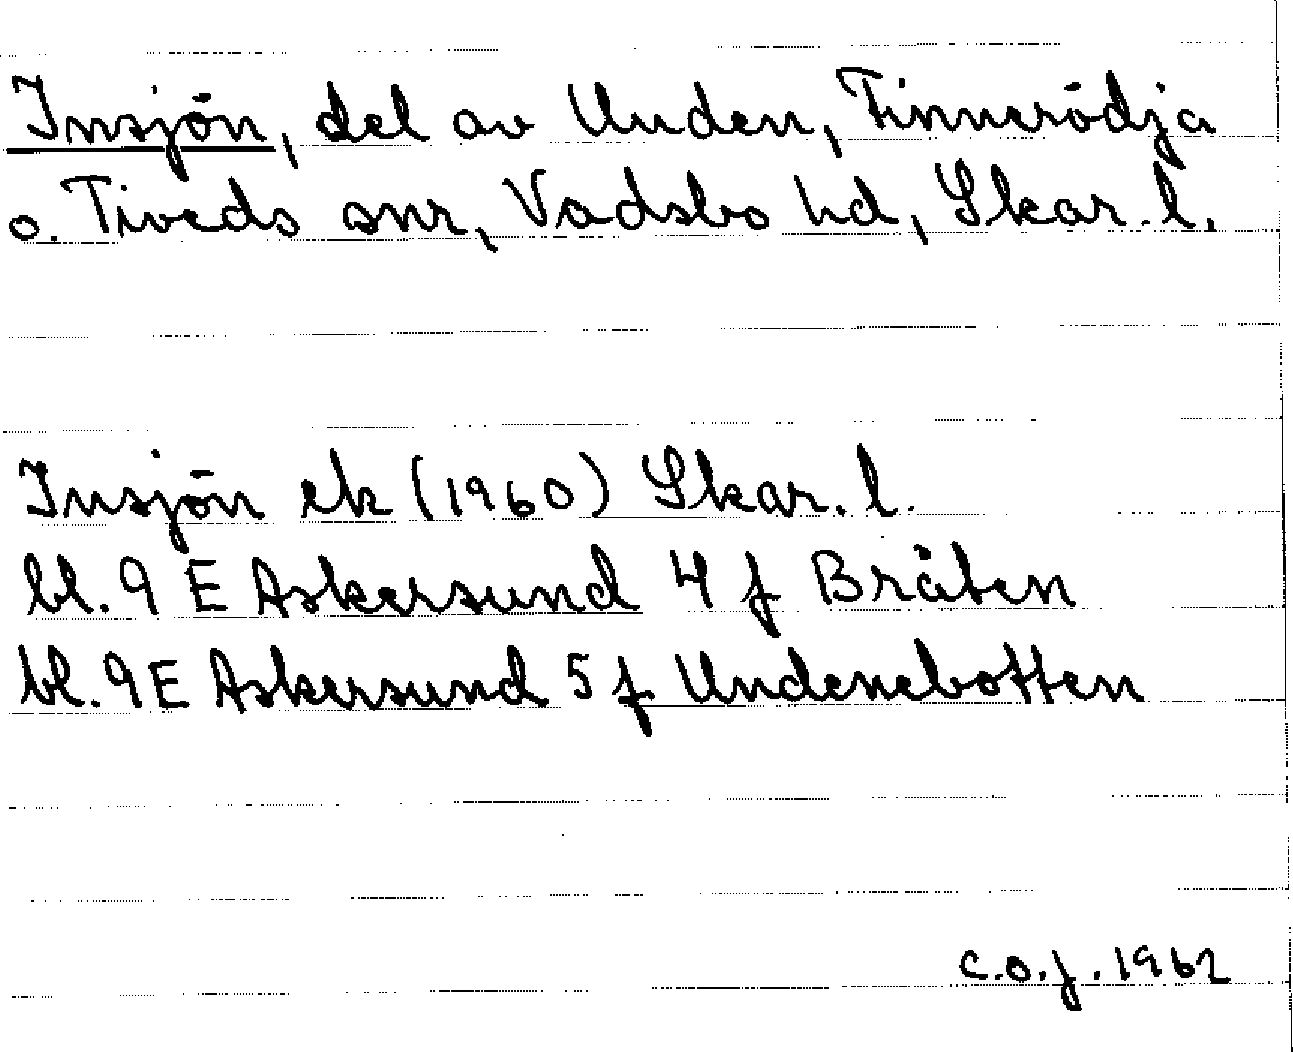 Insjön, del av Unden, Finnerödja
o. Tiveds snr, Vadsbo hd, Skar. l.
Insjön ek (1960) Skar. l.
bl. 9 E Askersund 4 f Bråten
bl. 9 E Askersund 5 f Undenebotten
C.O.J. 1962